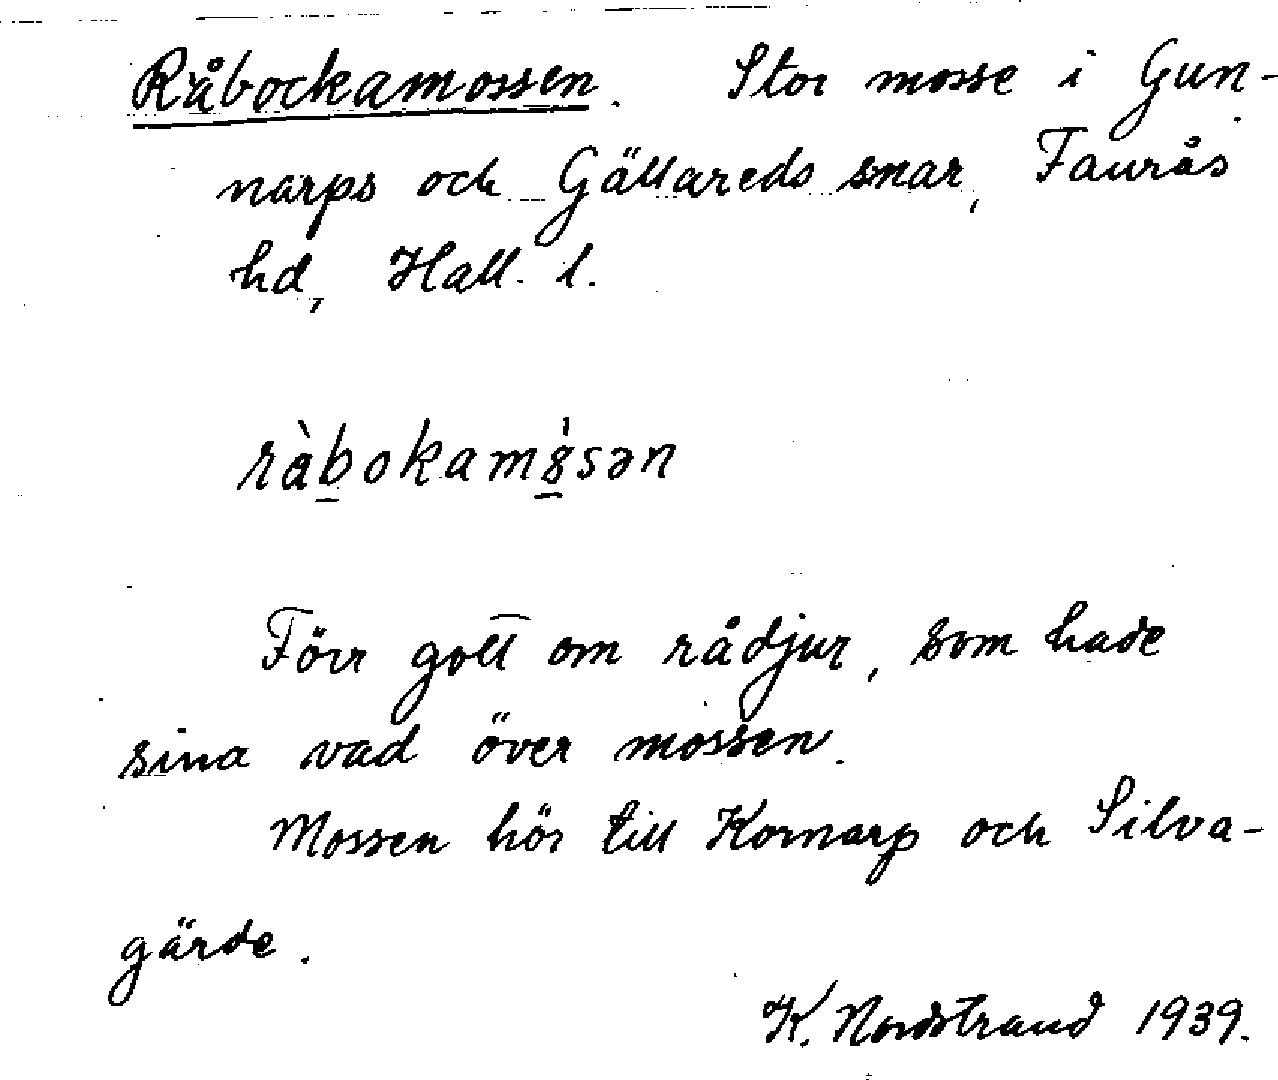 Råbockamossen. Stor mosse i Gun-
narps och Gällareds snar, Faurås
hd, Hall. l.
ràbokam8̀sən
Förr gott om rådjur, som hade
sina vad över mossen.
Mossen hör till Kornarp och Silva-
gärde.
K. Nordstrand 1939.